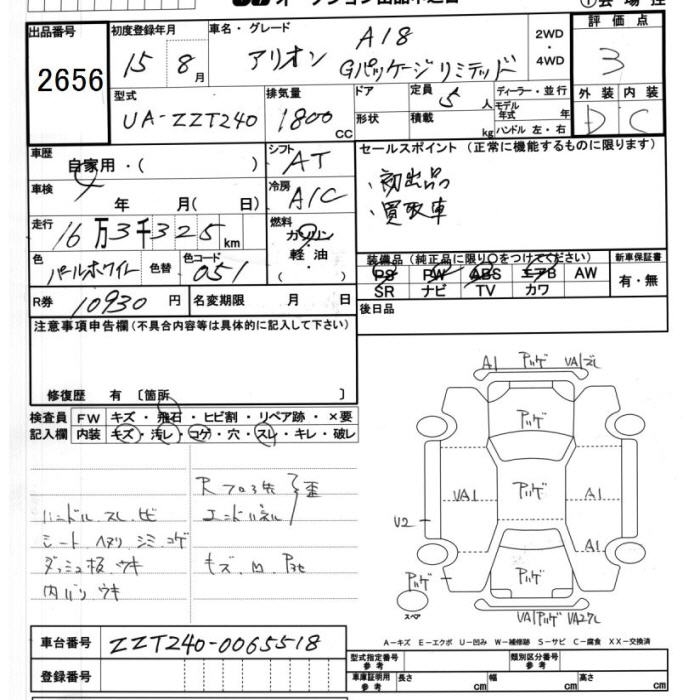 オークション出品申込書
出品番号
2656
初度登録年月
15 8月
車名・グレード
アリオン A18
Gパッケージリミテッド
2WD
・
4WD
評価点
3
型式
UA-ZZT240
排気量
1800 CC
ドア
形状
定員
5人
積載
kg
ディーラー・並行
モデル年式 年
ハンドル 左・右
外装 内装
D C
車歴
自家用・( )
シフト
AT
車検
年 月( 日)
冷房
A/C
走行
16万3千325km
燃料
ガソリン
・
軽油
・
( )
色
パールホワイト
色替
色コード
051
R券 10930円
名変期限 月 日
セールスポイント(正常に機能するものに限ります)
・初出品
・買取車
装備品(純正品に限り○をつけてください)
PS PW ABS エアB AW
SR ナビ TV カワ
新車保証書
有・無
後日品
注意事項申告欄(不具合内容等は具体的に記入して下さい)
修復歴 有〔箇所 〕
検査員記入欄
FW キズ・飛石・ヒビ割・リペア跡・×要
内装 キズ・汚レ・コゲ・穴・スレ・キレ・破レ
Rフロア先 歪
エンドパネル
ハンドル スレ ヒビ
シート ヘタリ シミ コゲ
ダッシュ板 ウキ
内バリ ウキ
キズ M
A1
VA1
A1
U2
A1
スペア
A-キズ E-エクボ U-凹み W-補修跡 S-サビ C-腐食 XX-交換済
車台番号 ZZT240-0065518
登録番号
型式指定番号 参考
類別区分番号 参考
車庫証明用 参考
長さ cm
幅 cm
高さ cm